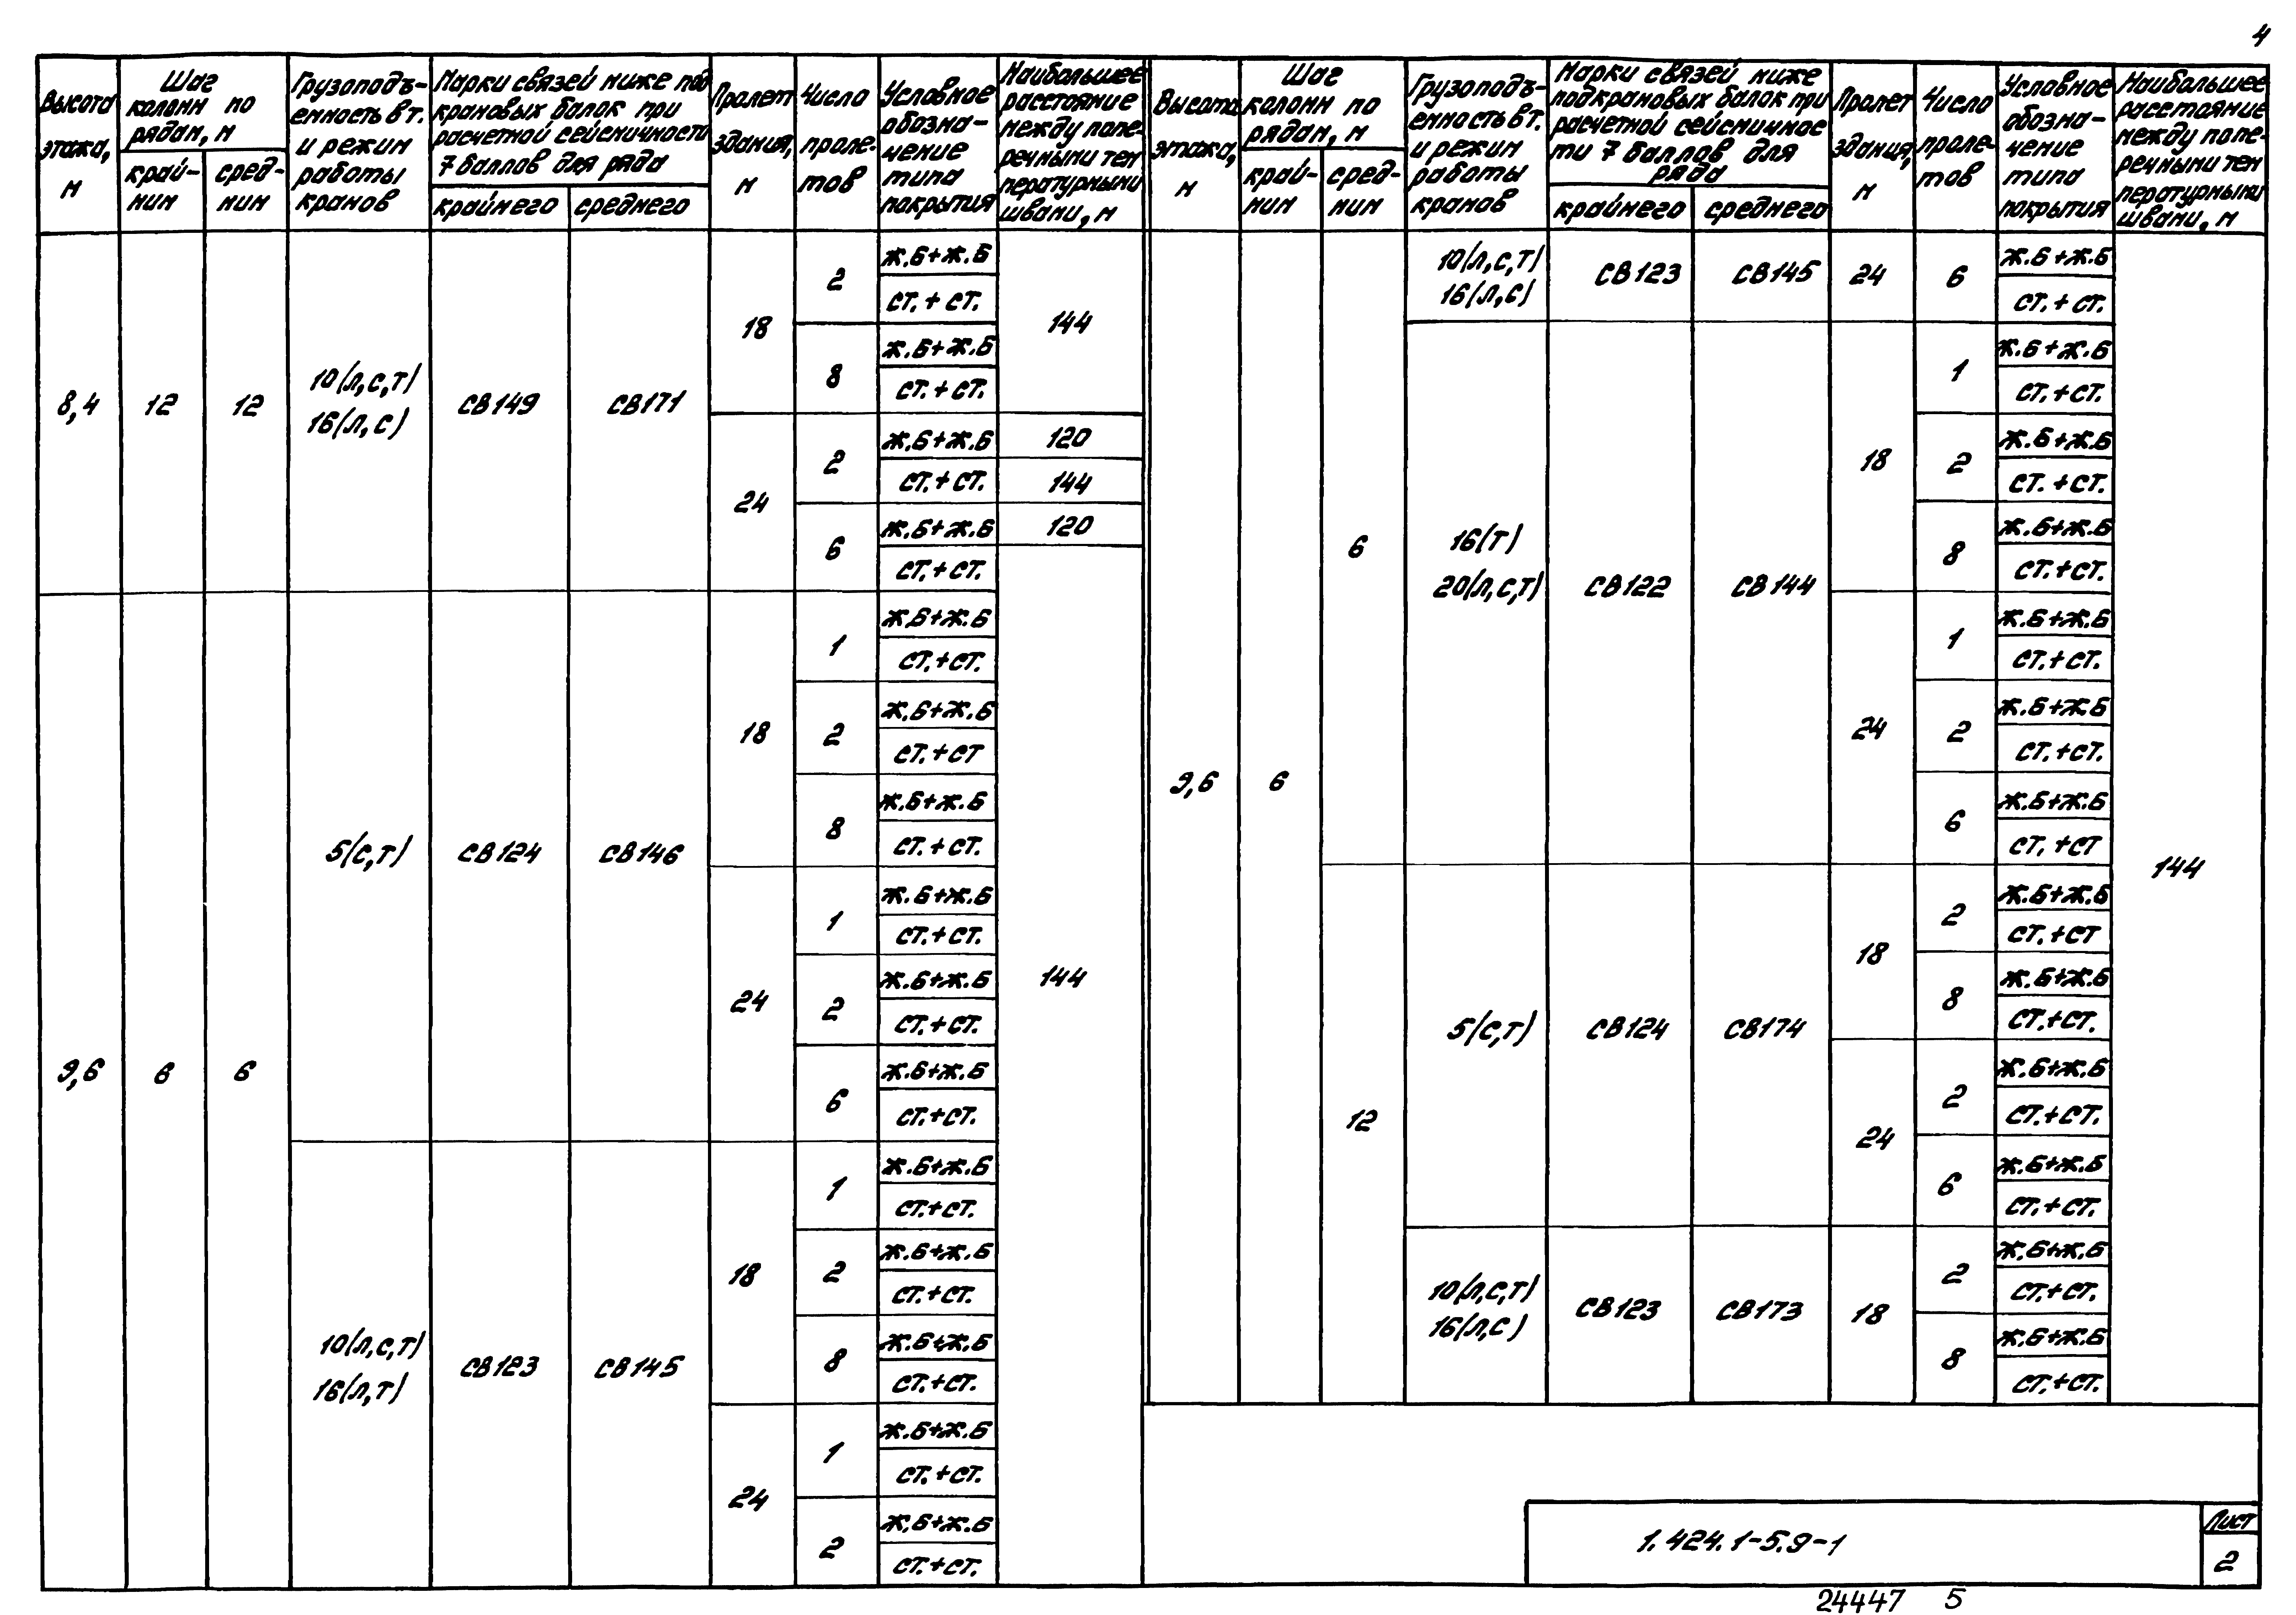 4
Высота этажа, м
Шаг колонн по рядам, м
край-ним
сред-ним
Грузоподъ-емность в т. и режим работы кранов
Марки связей ниже под крановых балок при расчетной сейсмичности 7 баллов для ряда
крайнего
среднего
Пролет здания, м
Число проле-тов
Условное обозна-чение типа покрытия
Наибольшее расстояние между попе-речными тем пературными швами, м
8,4
12
12
10(л,с,т)
16(л,с)
СВ149
СВ171
18
2
ж.б+ж.б
ст.+ст.
8
ж.б+ж.б
ст.+ст.
144
24
2
ж.б+ж.б
120
ст.+ст.
144
6
ж.б+ж.б
120
ст.+ст.
9,6
6
6
5(с,т)
СВ124
СВ146
18
1
ж.б+ж.б
ст.+ст.
2
ж.б+ж.б
ст.+ст
8
ж.б+ж.б
ст.+ст.
24
1
ж.б+ж.б
ст.+ст.
2
ж.б+ж.б
ст.+ст.
6
ж.б+ж.б
ст.+ст.
144
10(л,с,т)
16(л,т)
СВ123
СВ145
18
1
ж.б+ж.б
ст.+ст.
2
ж.б+ж.б
ст.+ст.
8
ж.б+ж.б
ст.+ст.
24
1
ж.б+ж.б
ст.+ст.
2
ж.б+ж.б
ст.+ст.
Высота этажа, м
Шаг колонн по рядам, м
край-ним
сред-ним
Грузоподъ-емность в т. и режим работы кранов
Марки связей ниже подкрановых балок при расчетной сейсмичнос ти 7 баллов для ряда
крайнего
среднего
Пролет здания, м
Число проле-тов
Условное обозна-чение типа покрытия
Наибольшее расстояние между попе-речными тем пературными швами, м
9,6
6
6
10(л,с,т)
16(л,с)
СВ123
СВ145
24
6
ж.б+ж.б
ст.+ст.
16(т)
20(л,с,т)
СВ122
СВ144
18
1
ж.б+ж.б
ст.+ст.
2
ж.б+ж.б
ст.+ст.
8
ж.б+ж.б
ст.+ст.
24
1
ж.б+ж.б
ст.+ст.
2
ж.б+ж.б
ст.+ст.
6
ж.б+ж.б
ст.+ст
144
12
5(с,т)
СВ124
СВ174
18
2
ж.б+ж.б
ст.+ст
8
ж.б+ж.б
ст.+ст.
24
2
ж.б+ж.б
ст.+ст.
6
ж.б+ж.б
ст.+ст.
10(л,с,т)
16(л,с)
СВ123
СВ173
18
2
ж.б+ж.б
ст.+ст.
8
ж.б+ж.б
ст.+ст.
1.424.1-5.9-1
Лист
2
24447 5